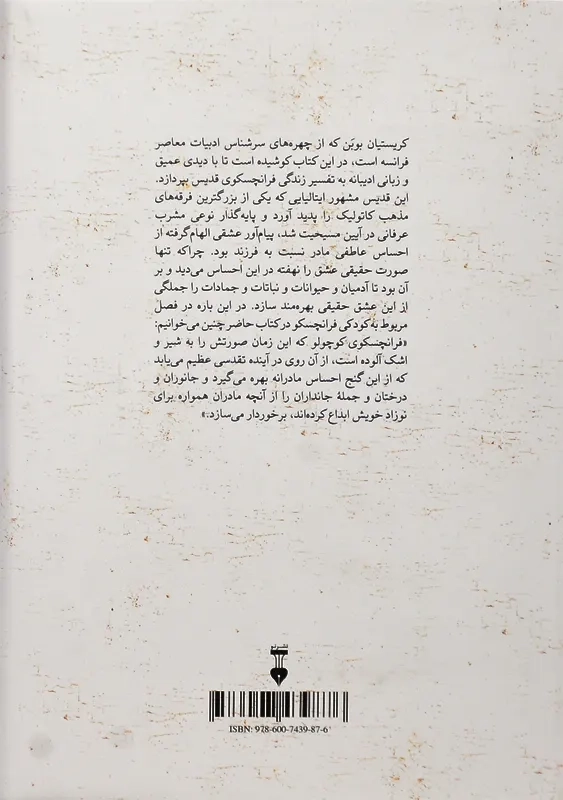 کریستیان بوبَن که از چهره‌های سرشناس ادبیات معاصر
فرانسه است، در این کتاب کوشیده است تا با دیدی عمیق
و زبانی ادیبانه به تفسیر زندگی فرانچسکوی قدیس بپردازد.
این قدیس مشهور ایتالیایی که یکی از بزرگترین فرقه‌های
مذهب کاتولیک را پدید آورد و پایه‌گذار نوعی مشرب
عرفانی در آیین مسیحیت شد، پیام‌آور عشقی الهام‌گرفته از
احساس عاطفی مادر نسبت به فرزند بود. چراکه تنها
صورت حقیقی عشق را نهفته در این احساس می‌دید و بر
آن بود تا آدمیان و حیوانات و نباتات و جمادات را جملگی
از این عشق حقیقی بهره‌مند سازد. در این باره در فصل
مربوط به کودکی فرانچسکو در کتاب حاضر چنین می‌خوانیم:
«فرانچسکوی کوچولو که این زمان صورتش را به شیر و
اشک آلوده است، از آن روی در آینده تقدسی عظیم می‌یابد
که از این گنج احساس مادرانه بهره می‌گیرد و جانوران و
درختان و جملهٔ جانداران را از آنچه مادران همواره برای
نوزاد خویش ابداع کرده‌اند، برخوردار می‌سازد.»
نشر نو
ISBN: 978-600-7439-87-6